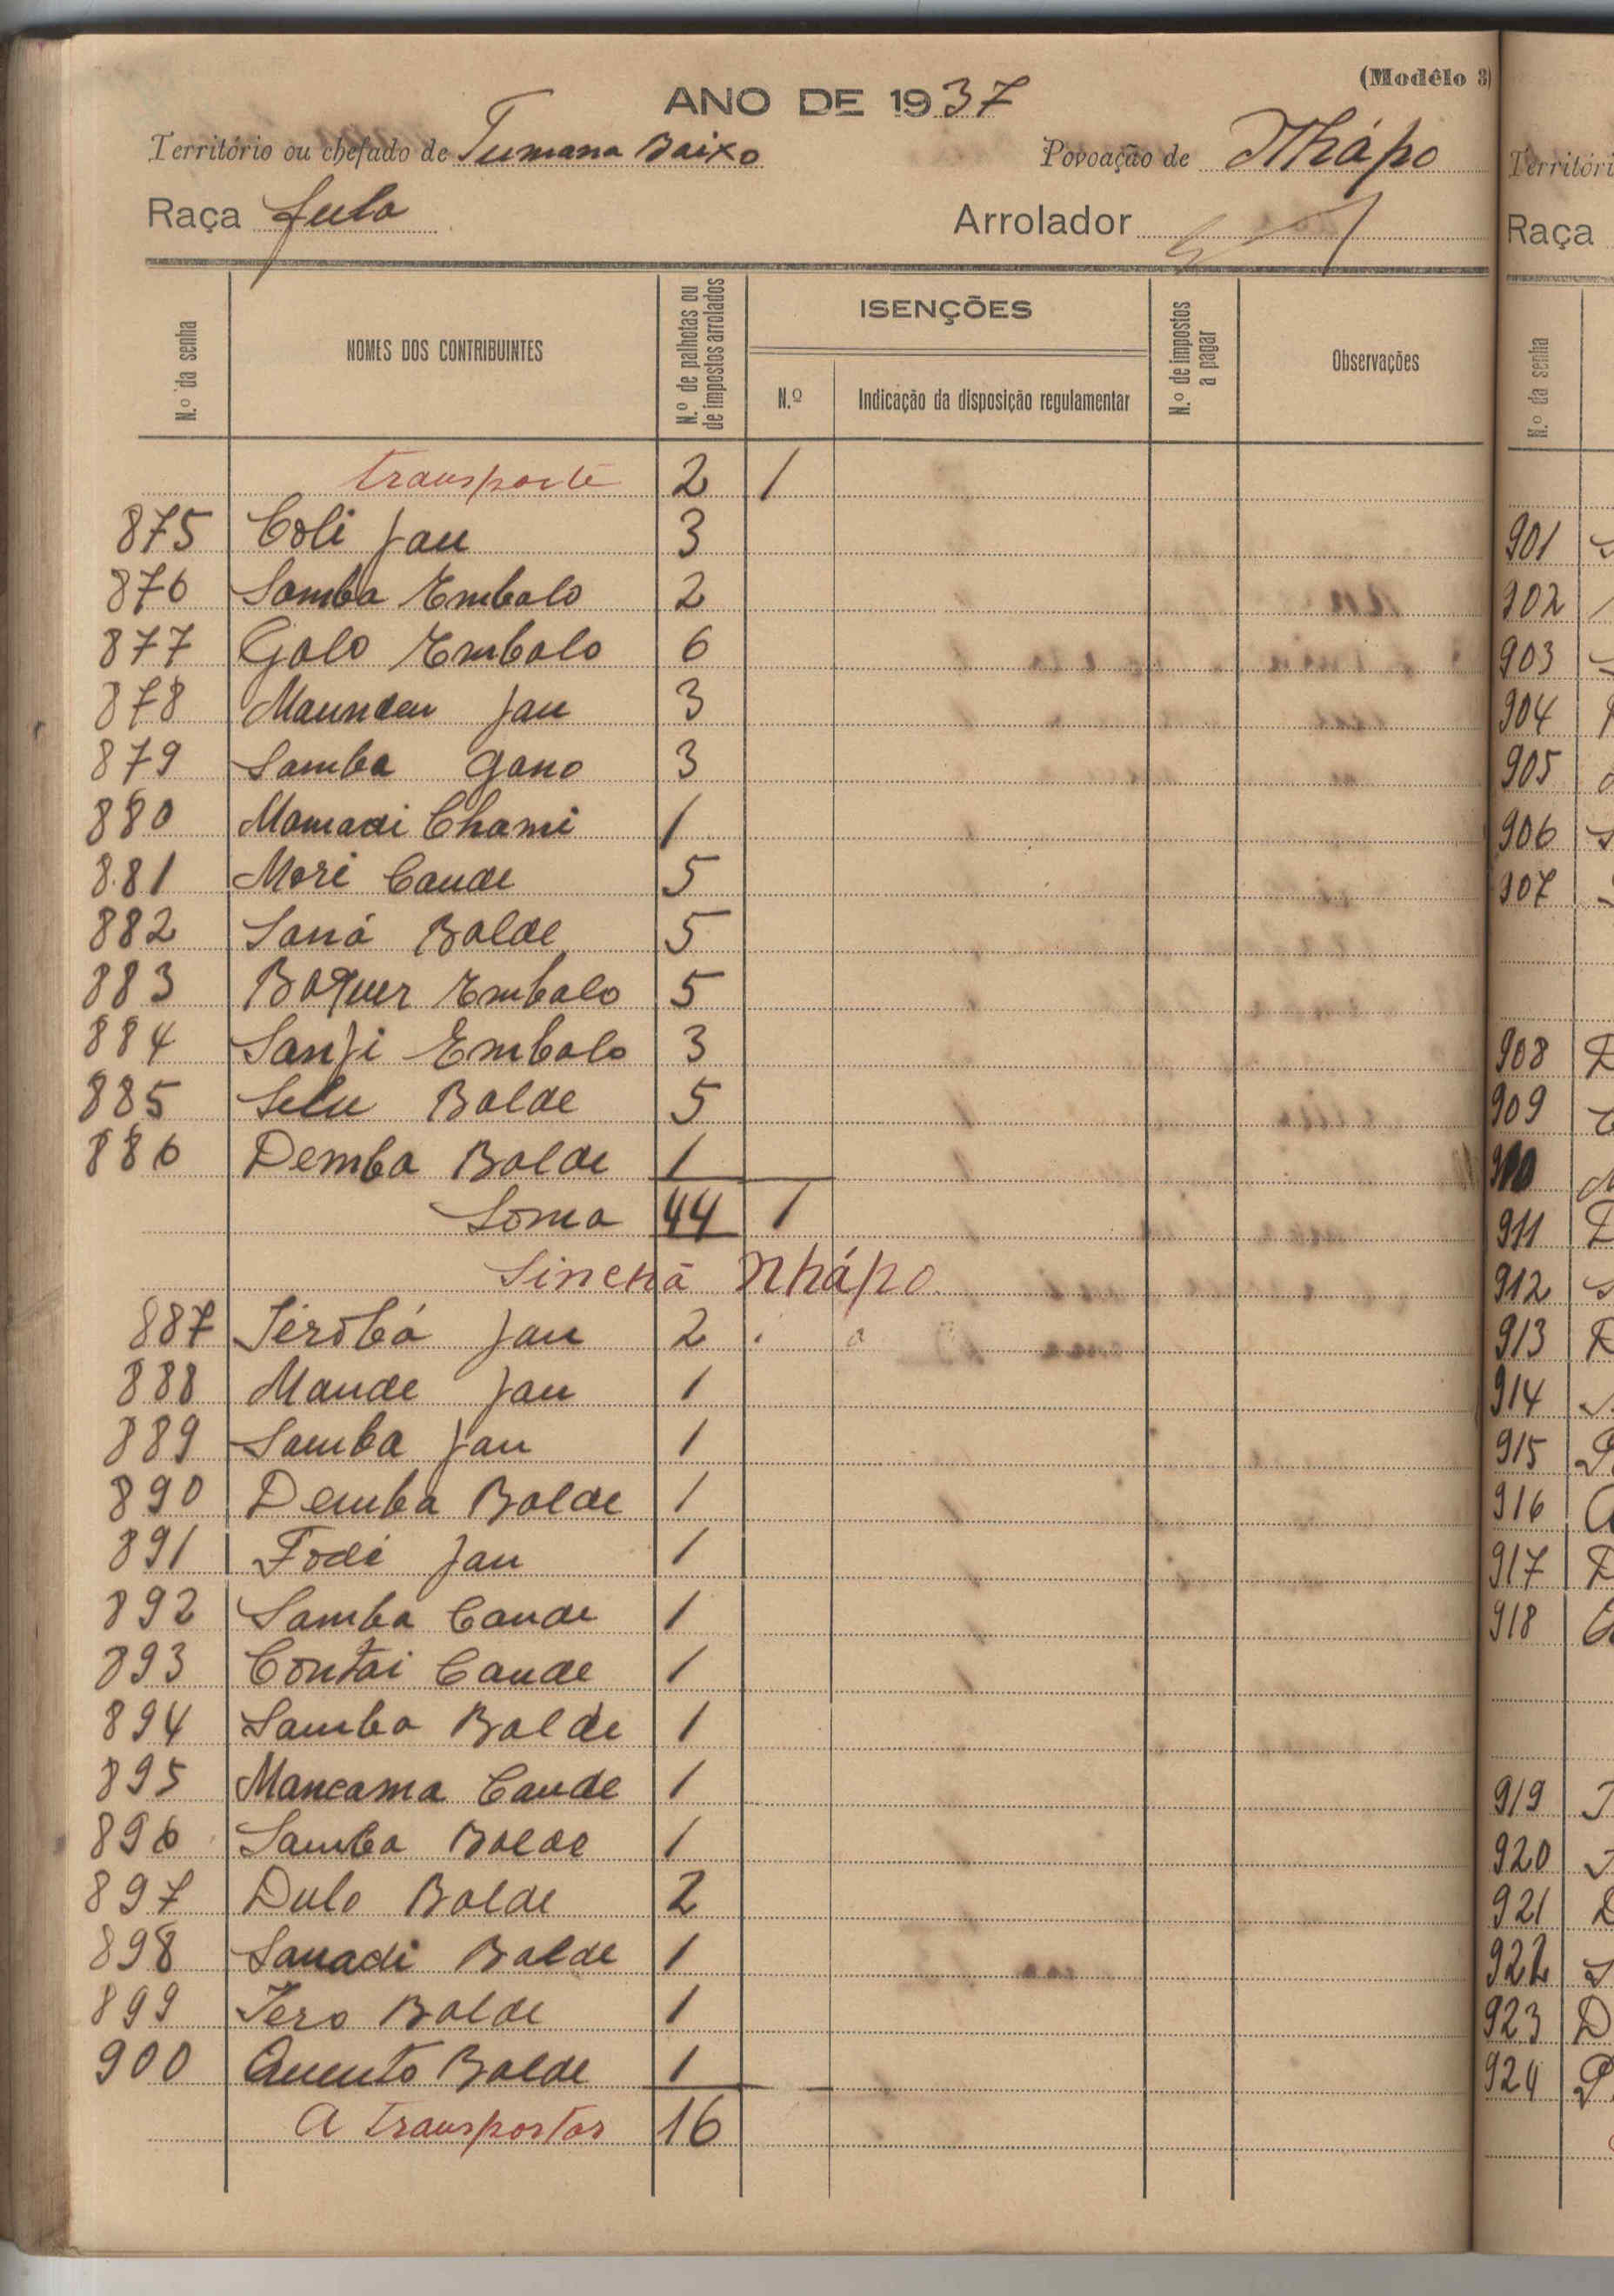 (Modêlo 3)
ANO DE 1937
Território ou chefado de Tumana Baixo Povoação de Nhápo
Raça fula Arrolador
N.º da senha NOMES DOS CONTRIBUINTES N.º de palhotas ou de impostos arrolados ISENÇÕES N.º Indicação da disposição regulamentar N.º de impostos a pagar Observações
transporte 2 1
875 Coli Jau 3
876 Samba Embalo 2
877 Galo Embalo 6
878 Maundeu Jau 3
879 Samba Gano 3
880 Mamadi Chami 1
881 Mori Cande 5
882 Saná Balde 5
883 Boquer Embalo 5
884 Sanji Embalo 3
885 Selu Balde 5
886 Demba Balde 1
Soma 44 1
Sinchã Nhápo
887 Jérobó Jau 2
888 Maude Jau 1
889 Samba Jau 1
890 Demba Balde 1
891 Fodé Jau 1
892 Samba Cande 1
893 Contai Cande 1
894 Samba Balde 1
895 Mancama Cande 1
896 Samba Balde 1
897 Dulo Balde 2
898 Sauadi Balde 1
899 Jero Balde 1
900 Balde 1
A transportar 16
Territóri
Raça
N.º da senha
901
902
903
904
905
906
907
908
909
910
911
912
913
914
915
916
917
918
919
920
921
922
923
924